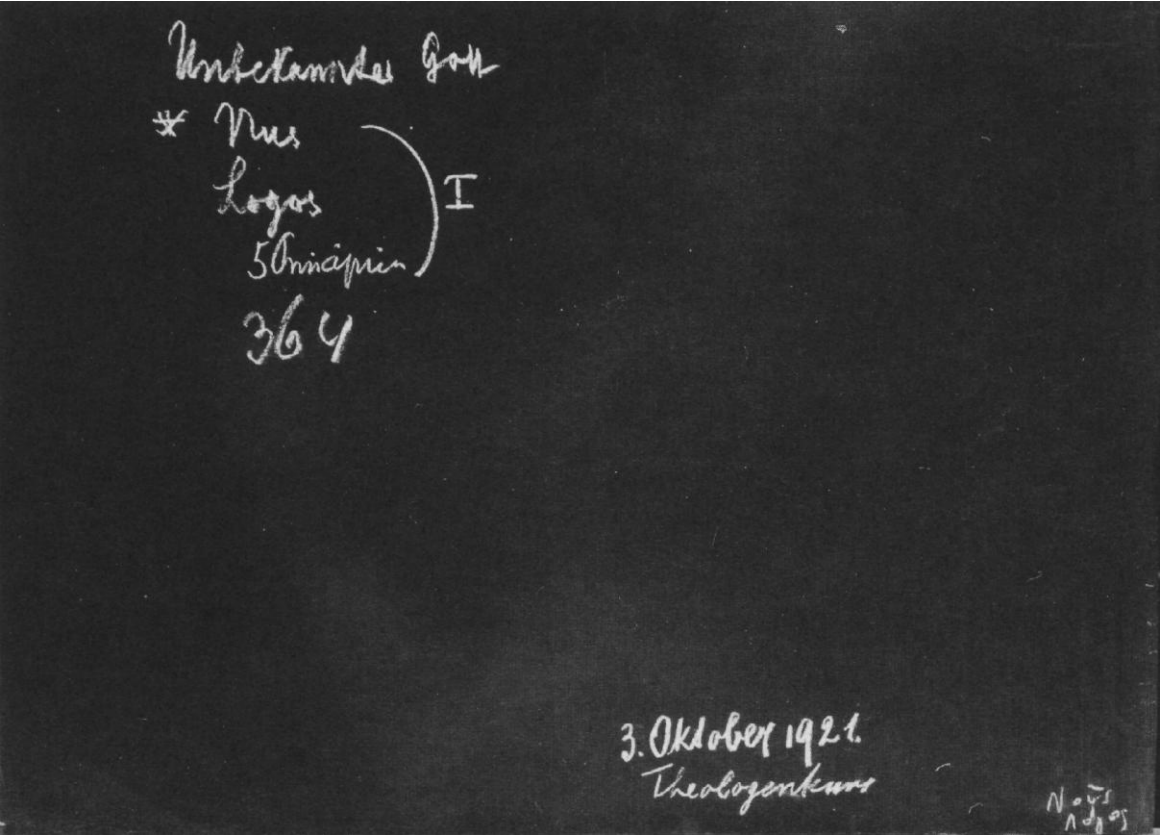 Unbekannter Gott
* Nus
Logos
I
5 Principien
364
3. Oktober 1921.
Theologenkurs
Noũs